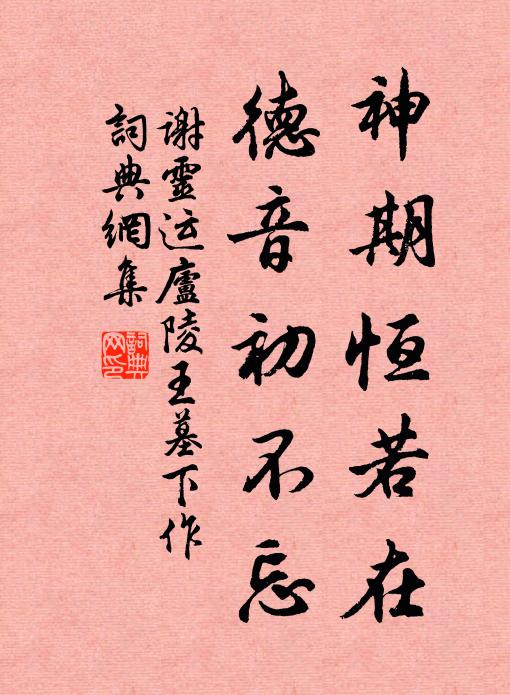 神期恒若在
德音初不忘
谢靈运廬陵王墓下作
詞典網集
詞典网印